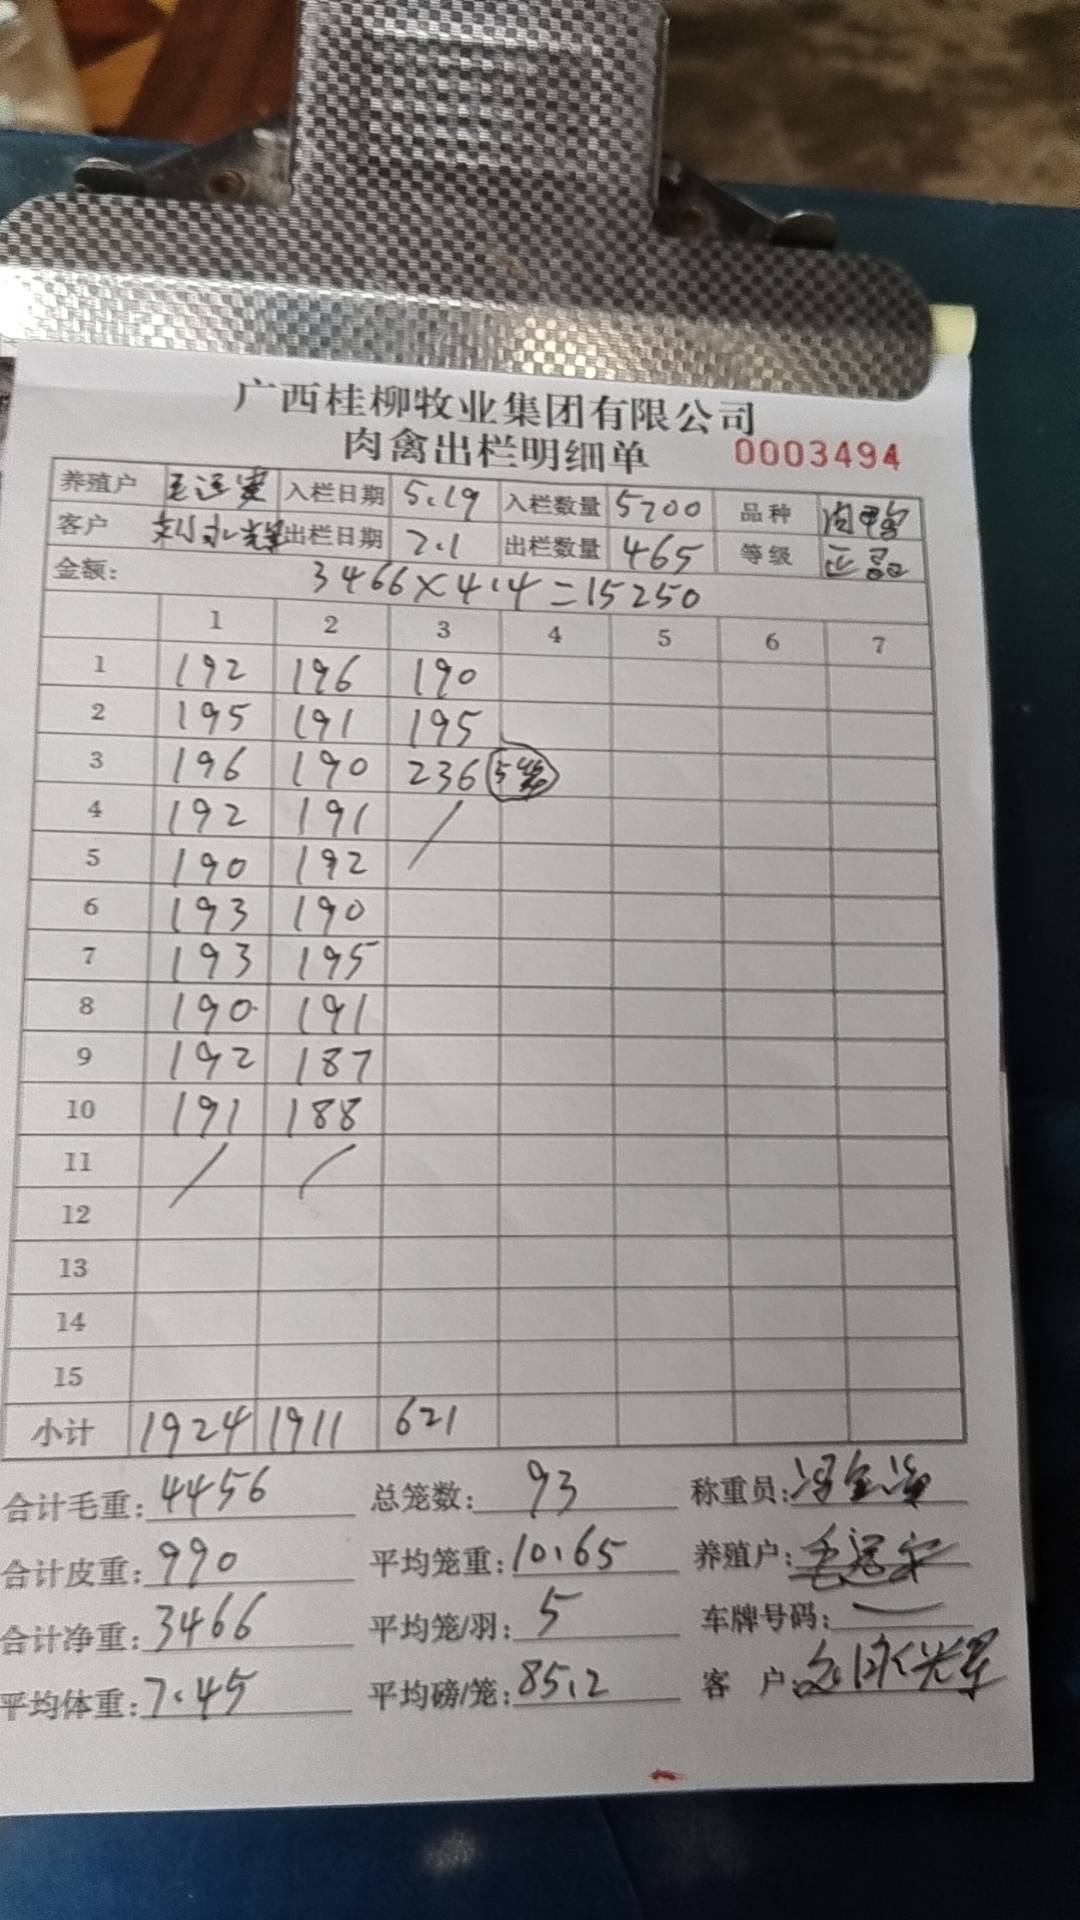 广西桂柳牧业集团有限公司
肉禽出栏明细单 0003494
养殖户 入栏日期 5.19 入栏数量 5200 品种 肉鸭
客户 刘永辉 出栏日期 7.1 出栏数量 465 等级 正品
金额: 3466×4.4=15250
1 2 3 4 5 6 7
1 192 196 190
2 195 191 195
3 196 190 236
4 192 191 /
5 190 192
6 193 190
7 193 195
8 190 191
9 192 187
10 191 188
11 / /
12
13
14
15
小计 1924 1911 621
合计毛重: 4456 总笼数: 93 称重员:
合计皮重: 990 平均笼重: 10.65 养殖户:
合计净重: 3466 平均笼/羽: 5 车牌号码: —
平均体重: 7.45 平均磅/笼: 85.2 客 户: